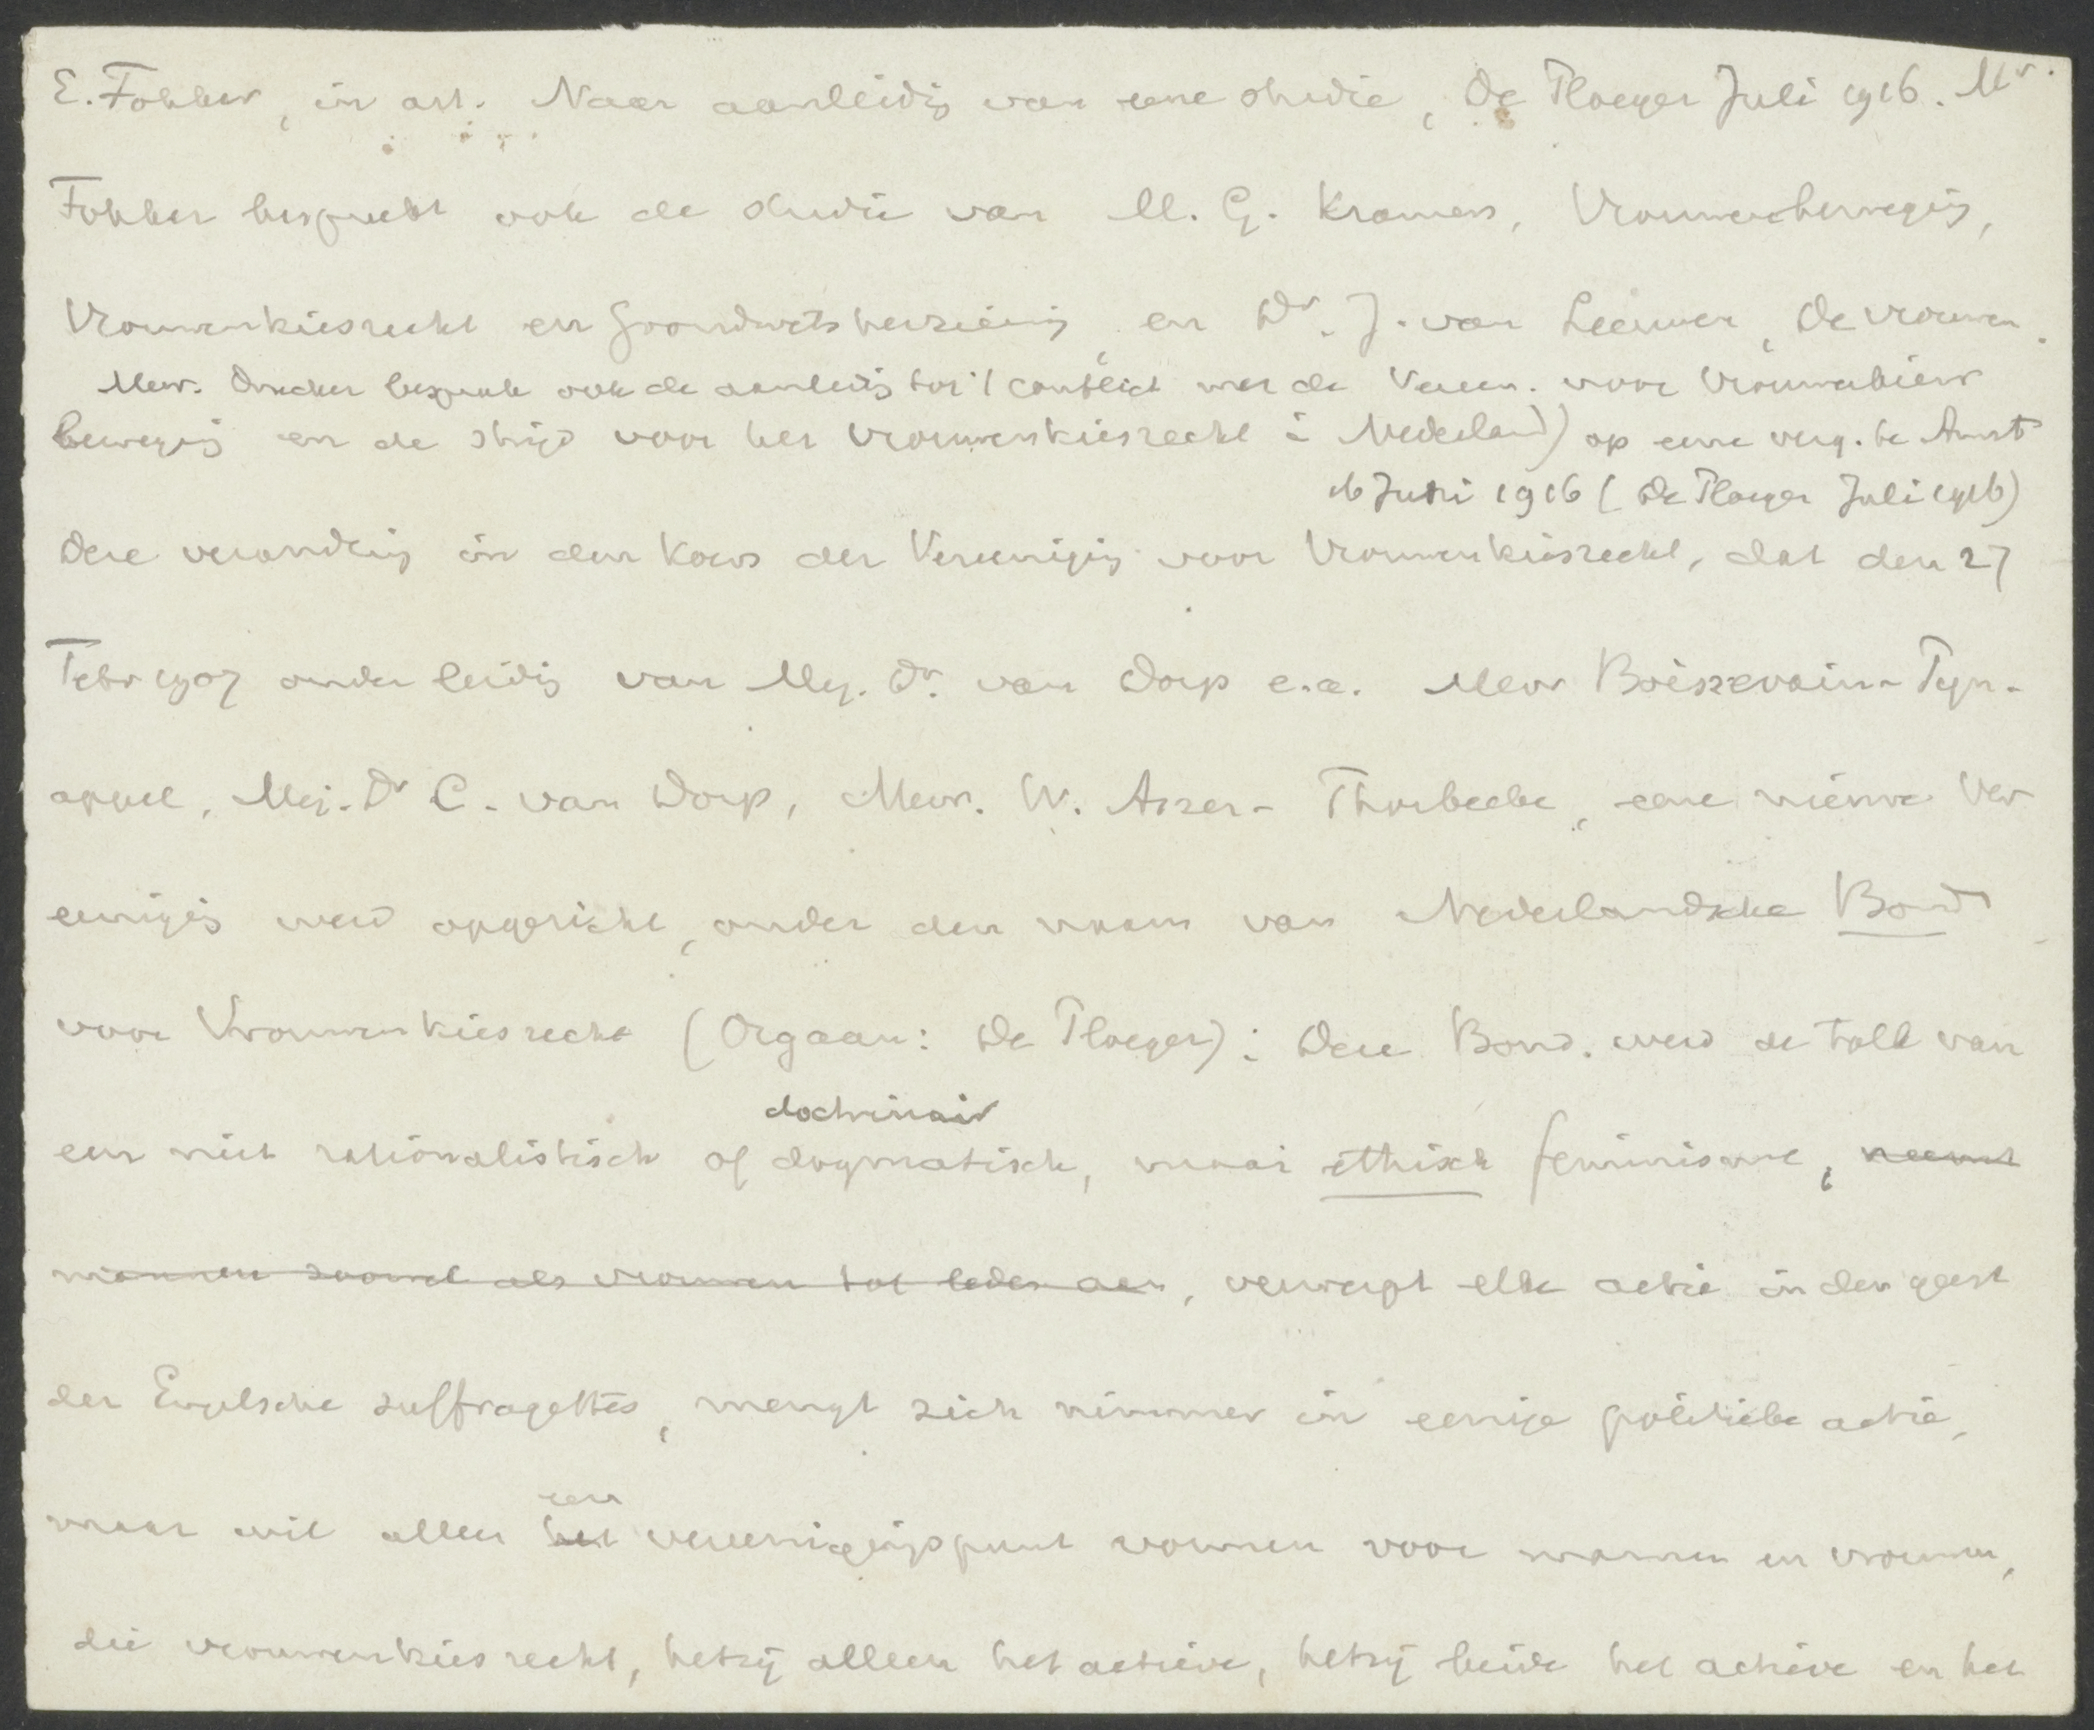 E. Fokker, in art. Naar aanleidig van eene studie, De Ploeger Juli 1916. Mr.
Fokker bespreekt ook de studie van M. G. Kramers, Vrouwenbewegig,
Vrouwenkiesrecht en Grondwetsherziening, en Dr. J. van Leeuwen, De vrouwen
Mevr. Drucker bespreekt ook de aanleidig tot 't conflict met de Vereen. voor Vrouwenkiesr
bewegig en de strijd voor het vrouwenkiesrecht i Nederland) op eene verg. te Amst
16 Juni 1916 (De Ploeger Juli 1916)
Deze veranderig in den koers der Vereenigig voor Vrouwenkiesrecht, dat den 27
Febr 1907 onder leidig van Mej. Dr. van Dorp e.a. Mevr Boissevain-Pijn-
appel, Mej. Dr C. van Dorp, Mevr. W. Asser-Thorbecke, eene nieuwe Ver
eenigig werd opgericht, onder den naam van Nederlandsche Bond
voor Vrouwenkiesrecht (Orgaan: De Ploeger); Deze Bond. werd de tolk van
doctrinair
een niet rationalistisch of dogmatisch, maar ethisch feminisme, neemt
mannen zoowel als vrouwen tot leden aan, verwerpt elke actie in den geest
der Engelsche suffragettes, mengt zich nimmer in eenige politieke actie,
een
maar wil alleen het vereenigigspunt vormen voor mannen en vrouwen,
die vrouwenkiesrecht, hetzij alleen het actieve, hetzij beide het actieve en het